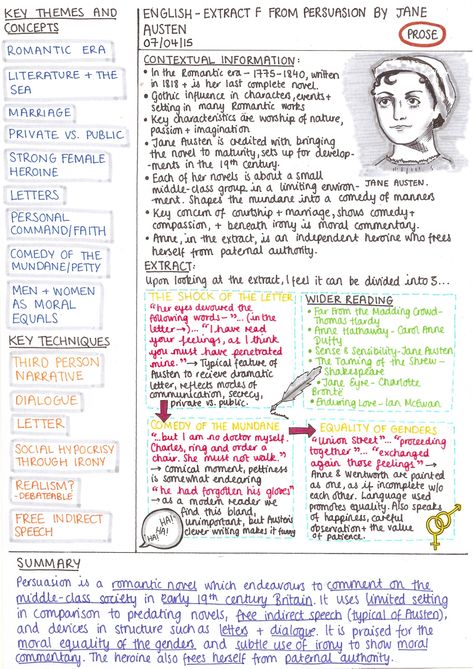 KEY THEMES AND
CONCEPTS
ROMANTIC ERA
LITERATURE + THE
SEA
MARRIAGE
PRIVATE VS. PUBLIC
STRONG FEMALE
HEROINE
LETTERS
PERSONAL
COMMAND/FAITH
COMEDY OF THE
MUNDANE/PETTY
MEN + WOMEN
AS MORAL
EQUALS
KEY TECHNIQUES
THIRD PERSON
NARRATIVE
DIALOGUE
LETTER
SOCIAL HYPOCRISY
THROUGH IRONY
REALISM?
-DEBATEABLE
FREE INDIRECT
SPEECH
ENGLISH - EXTRACT F FROM PERSUASION BY JANE
AUSTEN
07/04/15
PROSE
CONTEXTUAL INFORMATION:
• In the Romantic era - 1775-1840, written
in 1818 + is her last complete novel.
• Gothic influence in characters, events +
setting in many Romantic works
• Key characteristics are worship of nature,
passion + imagination
• Jane Austen is credited with bringing
the novel to maturity, sets up for develop-
ments in the 19th century.
• Each of her novels is about a small
middle-class group in a limiting environ-
ment. Shapes the mundane into a comedy of manners
• Key concern of courtship + marriage, shows comedy +
compassion, + beneath irony is moral commentary.
• Anne, in the extract, is an independent heroine who frees
herself from paternal authority.
JANE AUSTEN.
EXTRACT:
Upon looking at the extract, I feel it can be divided into 3...
THE SHOCK OF THE LETTER
"her eyes devoured the
following words - "... (in the
letter →)... "I have read
your feelings, as I think
you must have penetrated
mine." → Typical feature of
Austen to recieve dramatic
letter, reflects modes of
communication, secrecy,
private vs. public.
WIDER READING
• Far From the Madding Crowd -
Thomas Hardy
• Anne Hathaway - Carol Anne
Duffy
• Sense & Sensibility - Jane Austen
• The Taming of the Shrew -
Shakespeare
• Jane Eyre - Charlotte
Brontë
• Enduring Love - Ian McEwan
COMEDY OF THE MUNDANE
"..but I am no doctor myself.
Charles, ring and order a
chair. She must not walk."
→ comical moment, pettiness
is somewhat endearing
"he had forgotten his gloves"
→ as a modern reader we
find this bland,
unimportant, but Austen's
clever writing makes it funny
HA!
HA!
HA!
EQUALITY OF GENDERS
"Union Street"... "proceeding
together"... "exchanged
again those feelings" →
Anne & Wentworth are painted
as one, as if incomplete w/o
each other. Language used
promotes equality. Also speaks
of happiness, careful
observation + the value
of patience.
SUMMARY
Persuasion is a romantic novel which endeavours to comment on the
middle-class society in early 19th century Britain. It uses limited setting
in comparison to predating novels, free indirect speech (typical of Austen),
and devices in structure such as letters + dialogue. It is praised for the
moral equality of the genders and subtle use of irony to show moral
commentary. The heroine also frees herself from paternal authority.